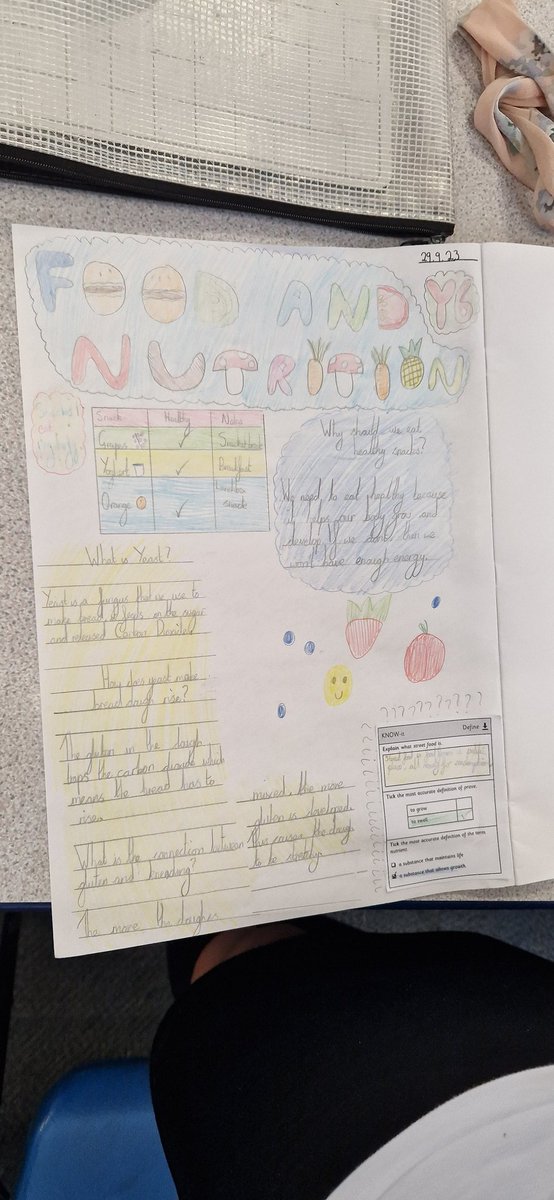 29.9.23
FOOD AND Y6
NUTRITION
Snack Healthy Notes
Grapes ✓ Snack/treat
Yoghurt ✓ Breakfast
Orange ✓ Lunchbox
snack
Why should we eat
healthy snacks?
We need to eat healthy because
it helps your body grow and
develop. If we don't then we
won't have enough energy.
What is Yeast?
Yeast is a fungus that we use to
make bread. It feeds on the sugar
and released Carbon Dioxide
How does yeast make
bread dough rise?
The gluten in the dough
traps the carbon dioxide which
means the bread has to
rise.
What is the connection between
gluten and kneading?
The more the dough is
mixed, the more
gluten is developed.
This causes the dough
to be stretchy.
? ? ? ? ? ? ? ? ? ?
KNOW-it Define
Explain what street food is.
Tick the most accurate definition of prove.
to grow
to swell ✓
Tick the most accurate definition of the term
nutrient.
a substance that maintains life
a substance that allows growth.